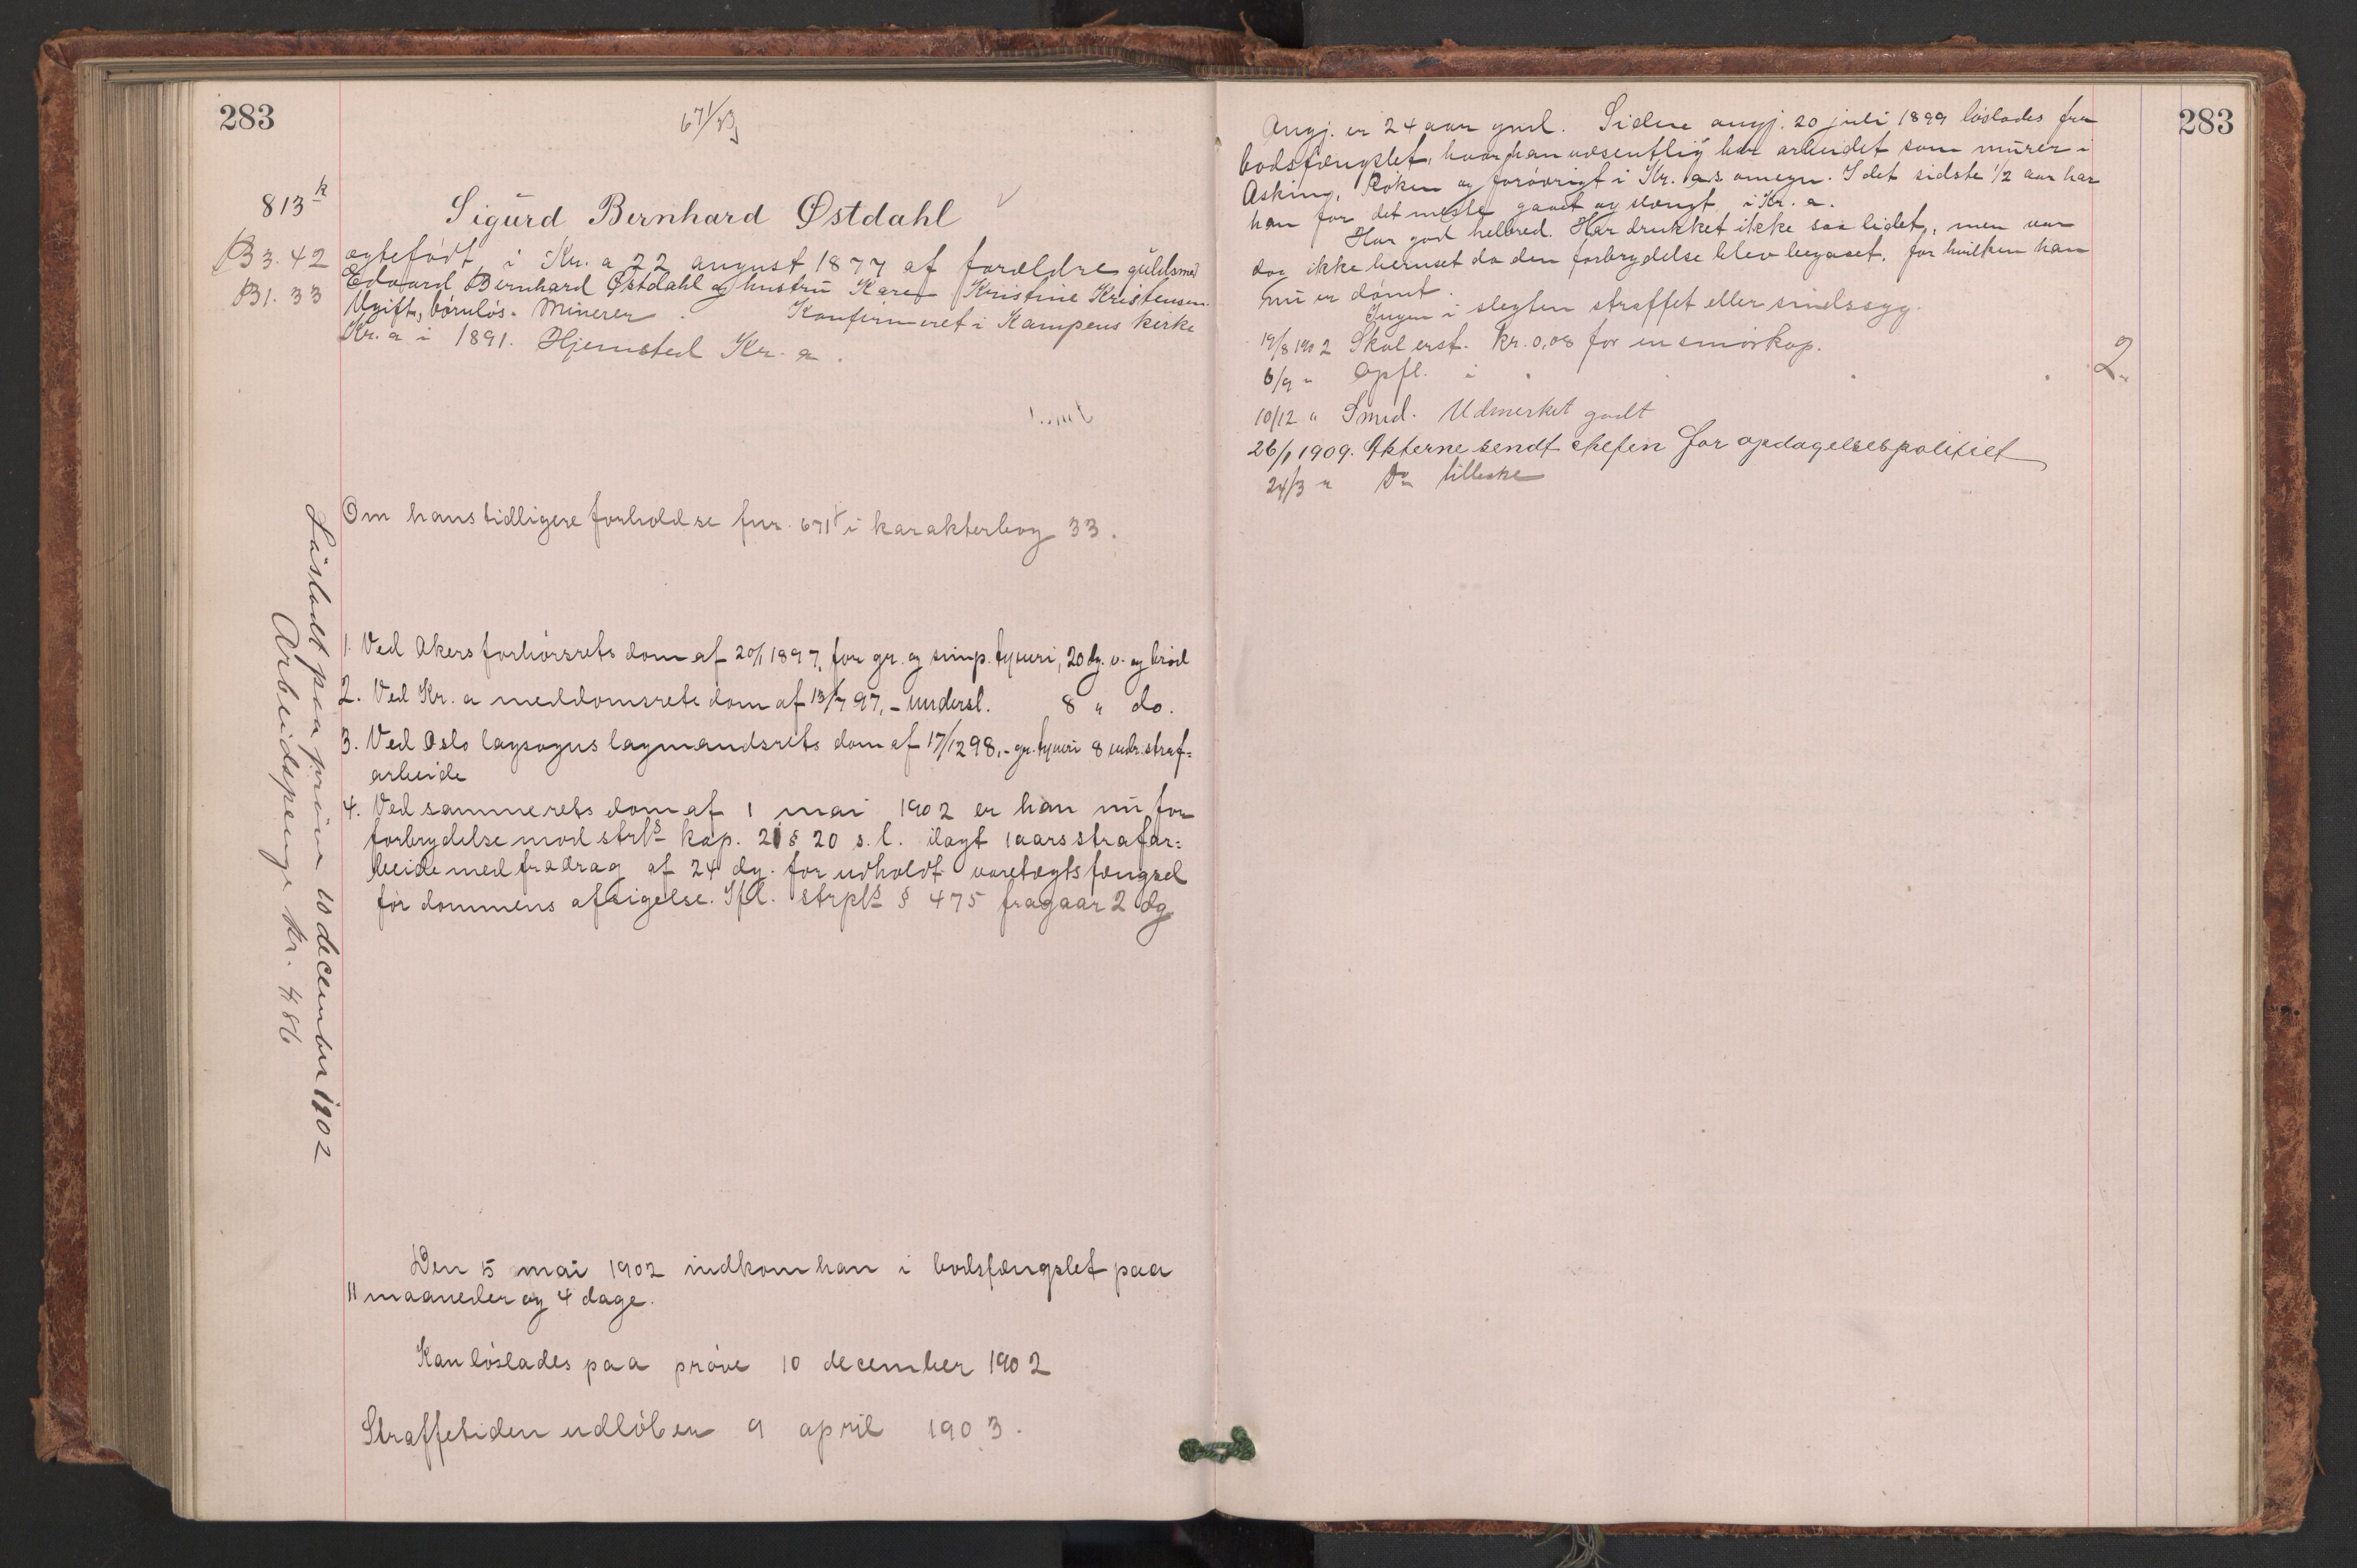 283
671/33
813 k
Sigurd Bernhard Østdahl
B3. 42
B1. 33
ægtefødt i Kr.a 22 august 1877 af forældre guldsmed
Edvard Bernhard Østdahl og hustru Karen Kristine Kristensen.
Ugift, børnløs. Minerer. Konfirmeret i Kampens kirke
Kr.a i 1891. Hjemsted Kr.a.
Om hans tidligere forhold se fnr. 671 i karakterbog 33.
1. Ved Akers forhørsrets dom af 20/1 1897, for gr. og simp. tyveri, 20 dg. v. og brød
2. Ved Kr.a meddomsrets dom af 13/7 97, - undersl. 8 " do.
3. Ved Oslo lagsogns lagmandsrets dom af 17/12 98, - gr. tyveri 8 mdr. straf=
arbeide
4. Ved samme rets dom af 1 mai 1902 er han nu for
forbrydelse mod strls kap. 21 § 20 s.l. ilagt 1 aars strafar=
beide med fradrag af 24 dg. for udholdt varetægtsfængsel
før dommens afsigelse. Ifl. strpls § 475 fragaar 2 dg.
Løsladt paa prøve 10 december 1902
Arbeidspenge kr. 4 86
Den 5 mai 1902 indkom han i bodsfængslet paa
11 maaneder og 4 dage.
Kan løslades paa prøve 10 december 1902
Straffetiden udløber 9 april 1903.
283
Angj. er 24 aar gml. Siden angj. 20 juli 1899 løslodes fra
bodsfængslet, hvor han væsentlig har arbeidet som murer i
Asking, Røken og forøvrigt i Kr.a.s omegn. I det sidste 1/2 aar har
han for det meste gaaet og slængt i Kr.a.
Har god helbred. Har drukket ikke saa lidet, men var
dog ikke beruset da den forbrydelse blev begaaet, for hvilken han
nu er dømt.
Ingen i slegten straffet eller sindssyg.
19/8 1902 Skal erst. kr. 0,08 for en smørkop.
6/9 " Opfl. i 2
10/12 " Smed. Udmerket godt
26/1 1909. Akterne sendt chefen for opdagelsespolitiet
24/3 " Do tilbake